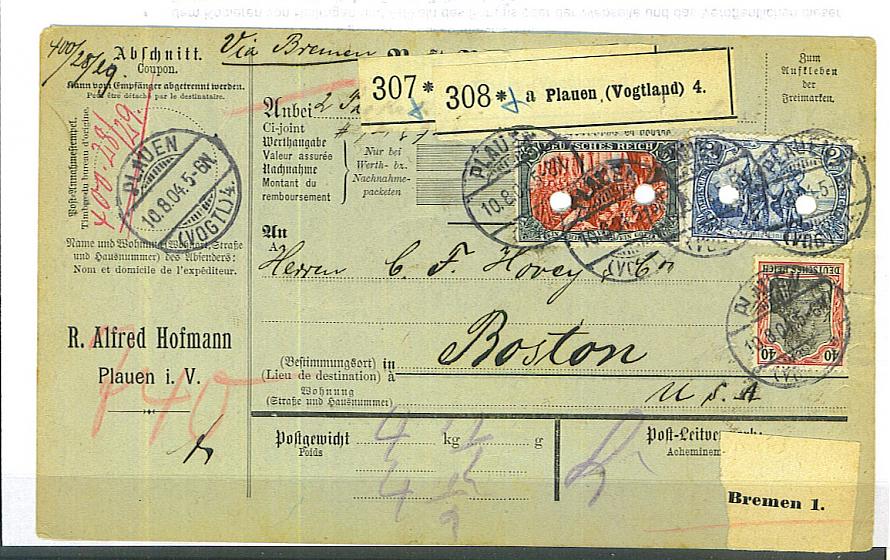 400/28/29.
Abschnitt.
Coupon.
Kann vom Empfänger abgetrennt werden.
Peut être détaché par le destinataire.
Via Bremen
307*
308* a Plauen (Vogtland) 4.
Zum
Aufkleben
der
Freimarken.
Anbei 2
Ci-joint
Werthangabe
Valeur assurée
Nachnahme
Montant du
remboursement
Nur bei
Werth- bz.
Nachnahme-
packeten
Post-Annahmestempel.
Timbre du bureau d'origine.
PLAUEN
10.8.04.5-6N.
(VOGTL) 4.
PLAUEN
10.8.04
DEUTSCHES REICH
(VOGTL)
DEUTSCHES REICH
40 40
PLAUEN
10.8.04.5-6N
Name und Wohnung (Wohnort, Straße
und Hausnummer) des Absenders:
Nom et domicile de l'expéditeur.
An
A
Herren C. F. Hovey & Co
R. Alfred Hofmann
Plauen i. V.
(Bestimmungsort) in
(Lieu de destination) à
Boston
Wohnung
(Straße und Hausnummer)
U. S. A
Postgewicht kg g
Poids
Post-Leitver
Acheminem
Bremen 1.